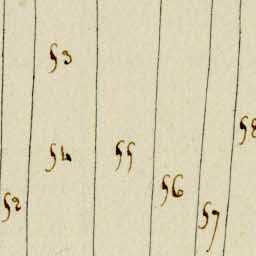 53
54
55
52
56
57
58